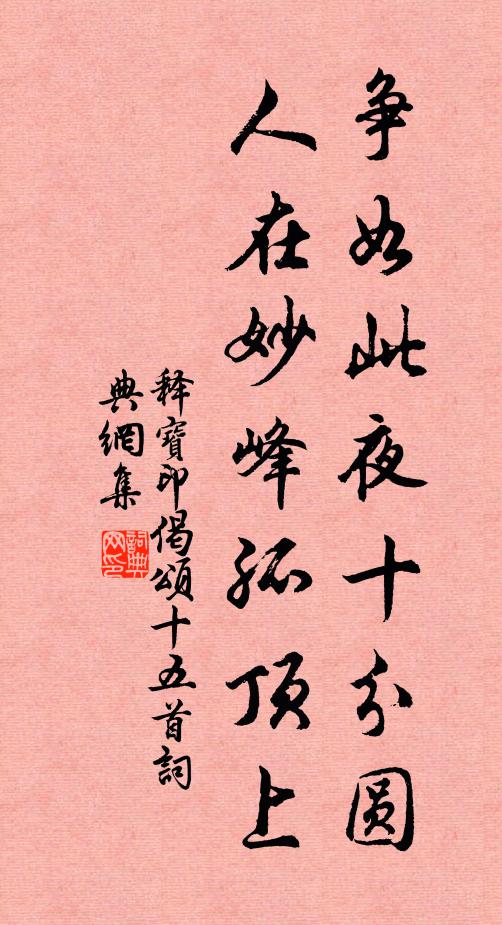 争如此夜十分圆
人在妙峰孤顶上
释寶印偈頌十五首詞
典網集
詞典网印